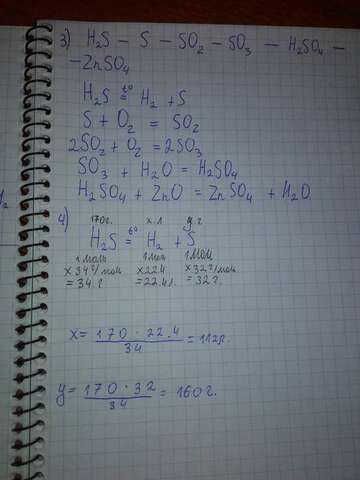 3) H₂S – S – SO₂ – SO₃ – H₂SO₄ –
– ZnSO₄
H₂S =t° H₂ + S
S + O₂ = SO₂
2SO₂ + O₂ = 2SO₃
SO₃ + H₂O = H₂SO₄
H₂SO₄ + ZnO = ZnSO₄ + H₂O
4) 170г. х.л у.г
H₂S =t° H₂ + S
1 моль 1 моль 1 моль
x34 г/моль x22.4 x32 г/моль
= 34. г =22.4л. = 32 г.
x = 170 · 22.4 / 34 = 112л.
y = 170 · 32 / 34 = 160г.